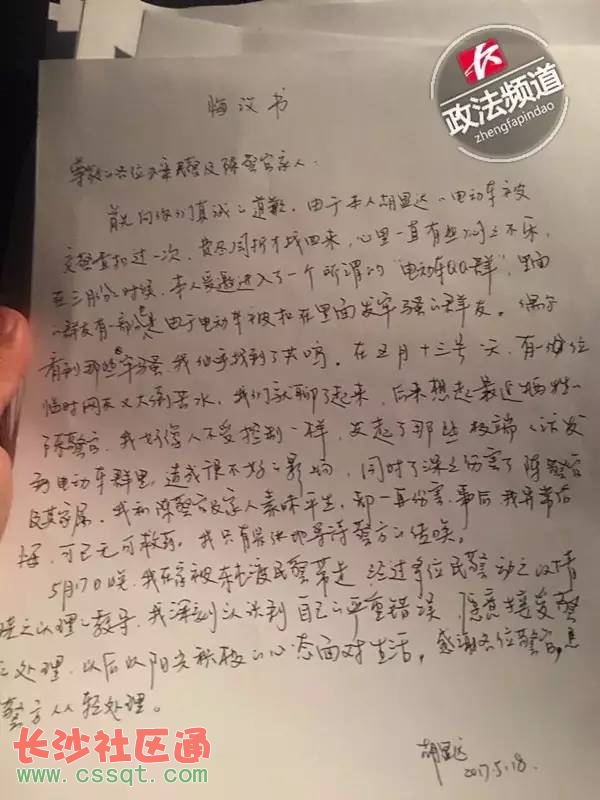 政法频道
zhengfapindao
悔汉书
尊敬的各位办案民警及陈警官家人:
首先向你们真诚的道歉。由于本人胡里达的电动车被
交警查扣过一次,费尽周折才找回来,心里一直有些闷闷不乐,
在三月份时候,本人受邀进入了一个所谓的"电动车QQ群",里面
的群友有一部分是由于电动车被扣在里面发牢骚的群友。偶尔
看到那些牢骚,我似乎找到了共鸣。在五月十三号一天,有一位
临时网友又大倒苦水,我们就聊了起来,后来想起最近牺牲的
陈警官,我好像人不受控制一样,发起了那些极端的话发
到电动车群里,造成很不好的影响,同时深深伤害了陈警官
及其家属。我和陈警官及家人素昧平生,却一再伤害,事后我异常后
悔,可已无可救药。我只有等待警方的传唤。
5月17日晚,我在家被东屯渡民警带走,经过多位民警动之以情
晓之以理的教导,我深刻认识到自己的严重错误,愿意接受警
处理,以后以阳光积极的心态面对生活。感谢各位警官,
警方从轻处理。
2017.5.18.
长沙社区通
www.cssqt.com